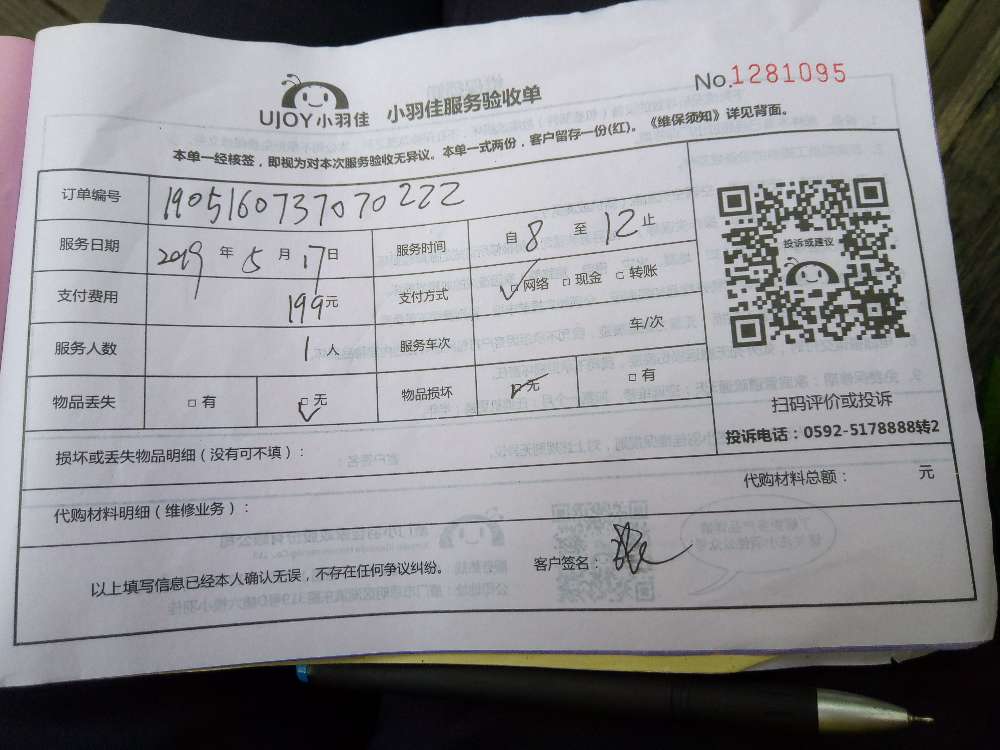 UJOY小羽佳 小羽佳服务验收单 No.1281095
本单一经核签，即视为对本次服务验收无异议。本单一式两份，客户留存一份(红)。《维保须知》详见背面。
订单编号 1905160737070222
服务日期 2019年5月17日 服务时间 自8至12止
支付费用 199元 支付方式 □网络 □现金 □转账
服务人数 1人 服务车次 车/次
物品丢失 □有 □无 物品损坏 □无 □有
投诉或建议
扫码评价或投诉
投诉电话：0592-5178888转2
损坏或丢失物品明细（没有可不填）：
代购材料明细（维修业务）： 代购材料总额： 元
以上填写信息已经本人确认无误，不存在任何争议纠纷。 客户签名：